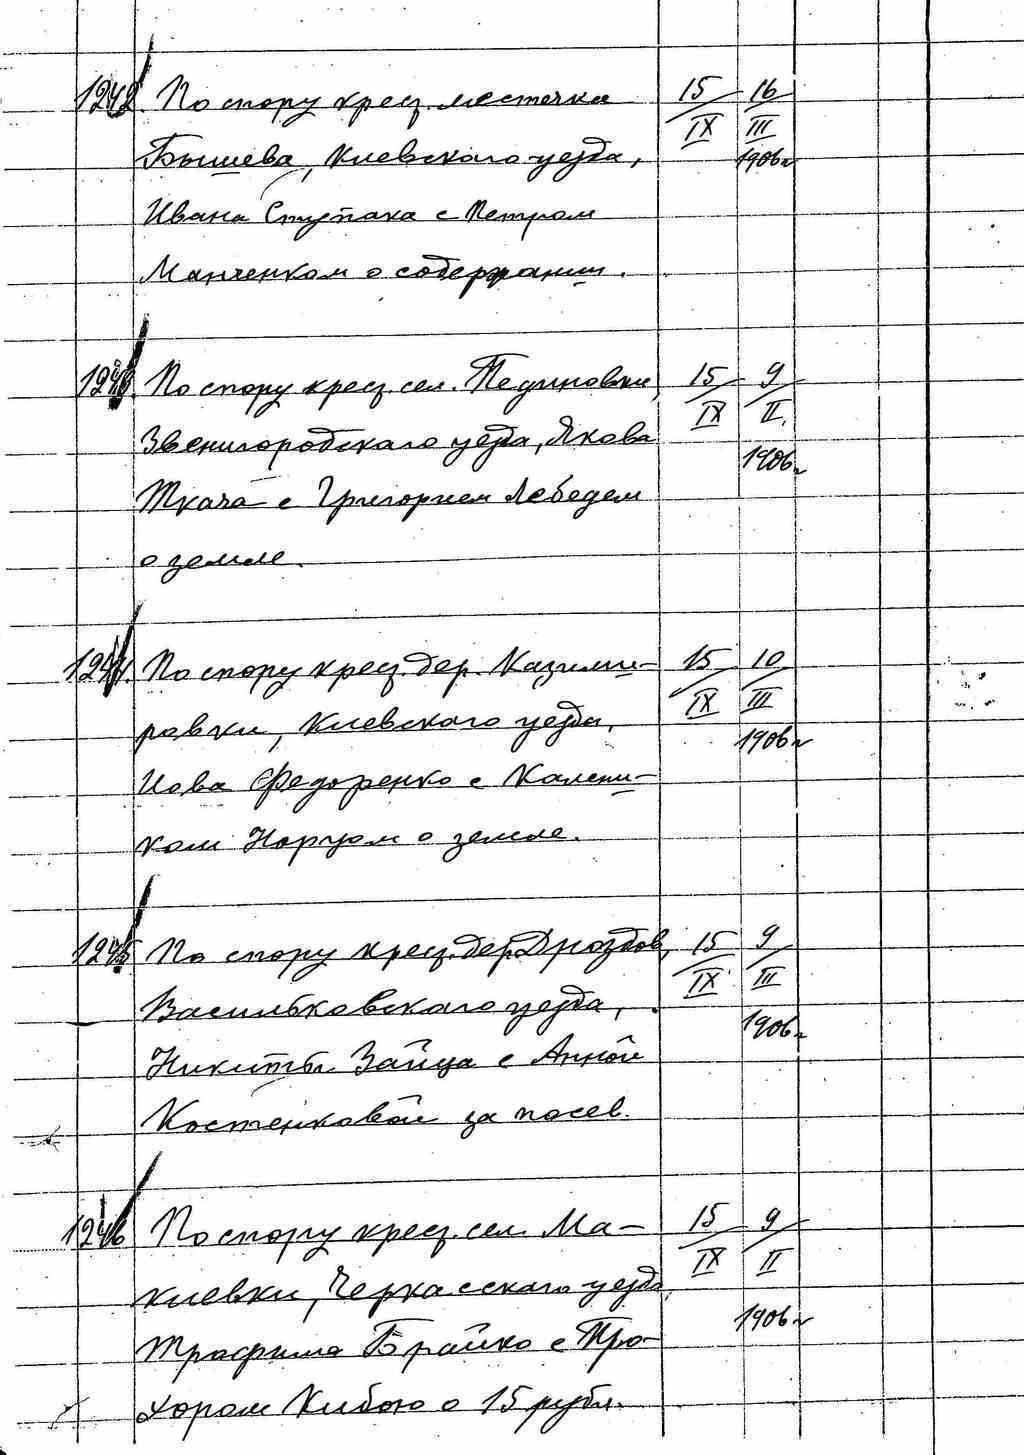 1242. По спору крест. местечка 15/IX 16/III
Бышева, Киевского уезда, 1906 г
Ивана Ступака с Петром
Манченком о содержании.
1243. По спору крест. сел. Пединовки, 15/IX 9/II.
Звенигородского уезда, Якова 1906 г
Ткача с Григорием Лебедем
о земле.
1244. По спору крест. дер. Казими- 15/IX 10/III
ровки, Киевского уезда, 1906 г
Иова Федоренко с Калени-
ком Норцом о земле.
1245 По спору крест. дер. Дроздов, 15/IX 9/III
Васильковского уезда, 1906 г
Никиты Зайца с Анной
Костенковой за посев.
1246 По спору крест. сел. Ма- 15/IX 9/II
киевки, Черкасского уезда, 1906 г
Трофима Брайко с Про-
хором Кибою о 15 рубл.